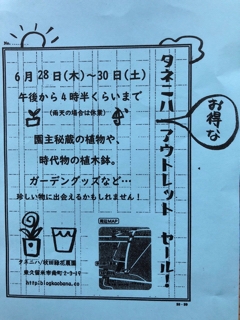 タネニハ アウトレット セール!
お得な
6月28日(木)～30日(土)
午後から4時半くらいまで
(雨天の場合は休業)
園主秘蔵の植物や、
時代物の植木鉢。
ガーデングッズなど…
珍しい物に出会えるかもしれません!
タネニハ/秋田緑花農園
東久留米市南町2-3-19